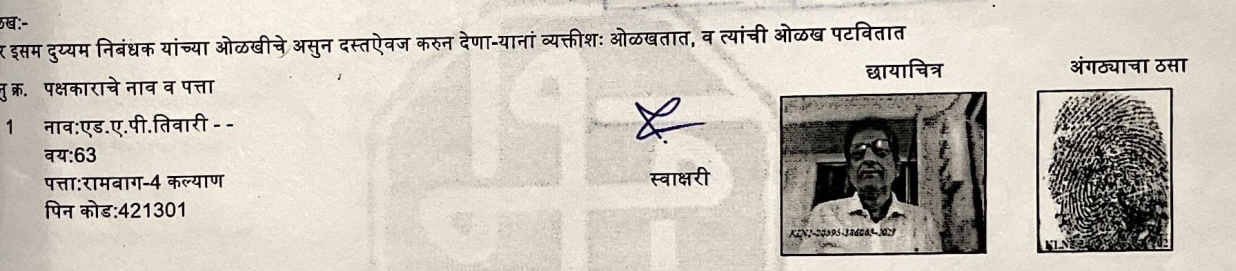 इसम दुय्यम निबंधक यांच्या ओळखीचे असुन दस्तऐवज करुन देणा-यानां व्यक्तीशः ओळखतात, व त्यांची ओळख पटवितात
क्र. पक्षकाराचे नाव व पत्ता
छायाचित्र
अंगठ्याचा ठसा
1 नाव:एड.ए.पी.तिवारी - -
वय:63
पत्ता:रामबाग-4 कल्याण
पिन कोड:421301
स्वाक्षरी